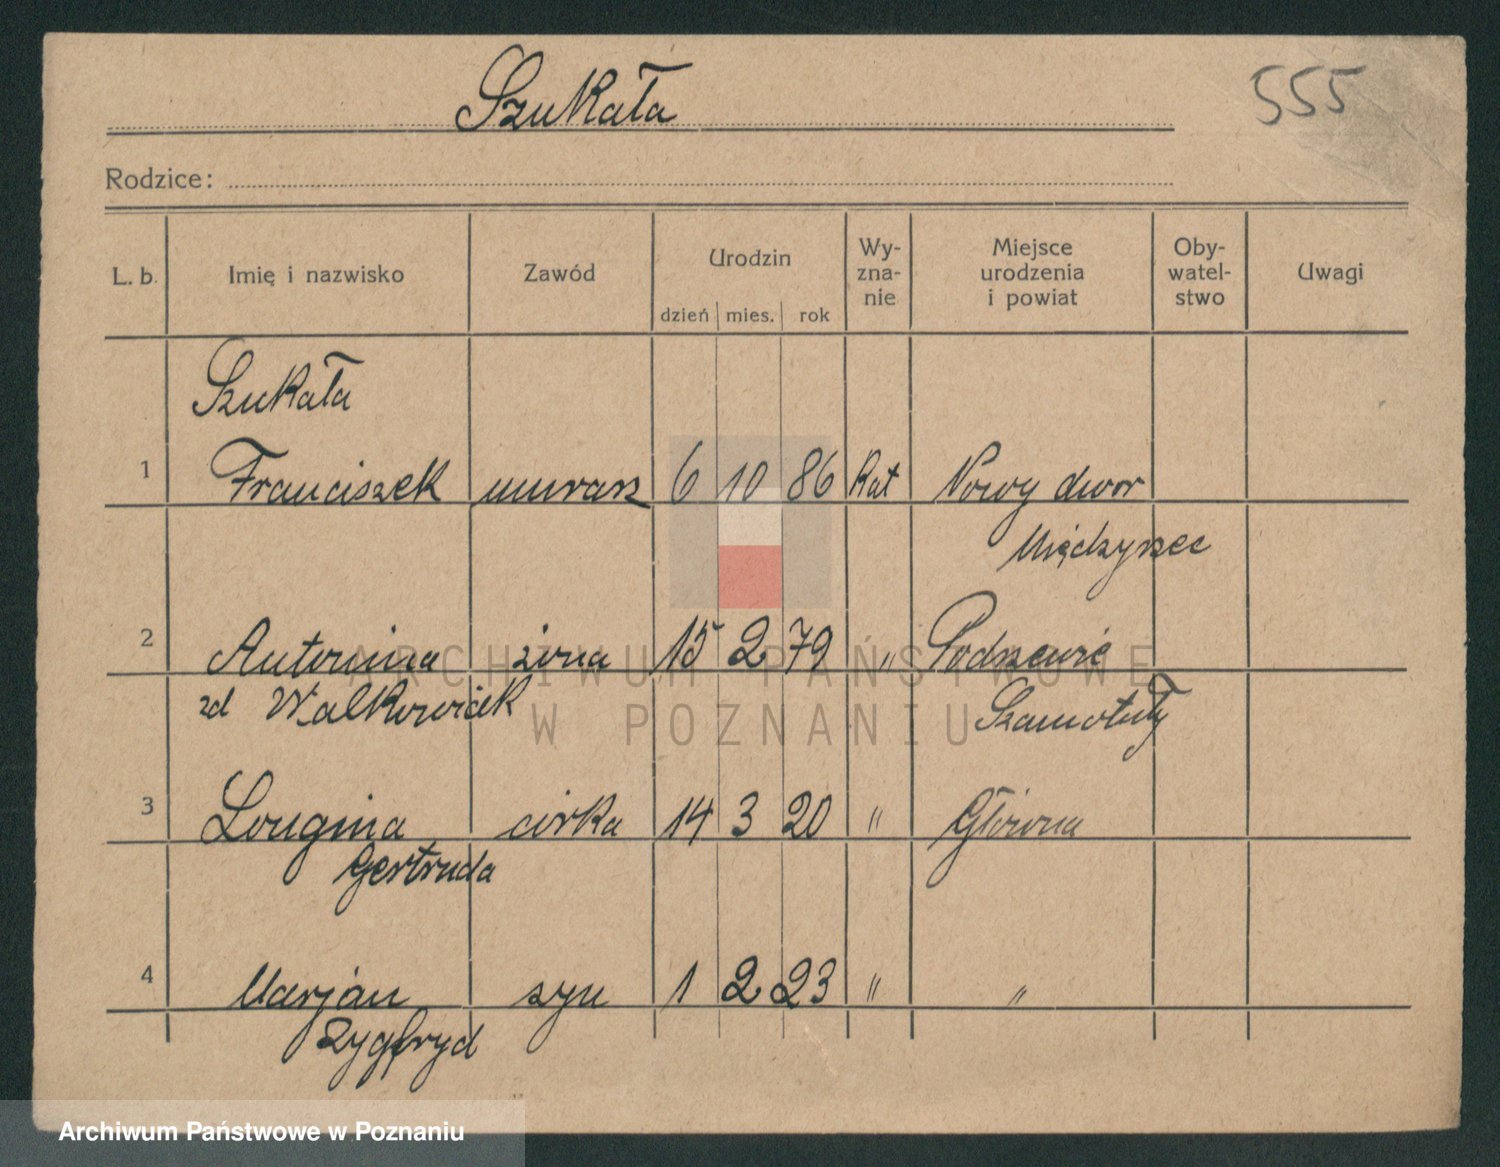 Szukała
555
Rodzice:
L. b. Imię i nazwisko Zawód Urodzin dzień mies. rok Wy-zna-nie Miejsce urodzenia i powiat Oby-watel-stwo Uwagi
Szukała
1 Franciszek murarz 6 10 86 Kat Nowy dwor
Międzyrzec
2 Antonina żona 15 2 79 " Podrzewie
zd Walkowiak Szamotuły
3 Longina córka 14 3 20 " Główna
Gertruda
4 Marjan syn 1 2 23 " "
Zygfryd
ARCHIWUM PAŃSTWOWE
W POZNANIU
Archiwum Państwowe w Poznaniu